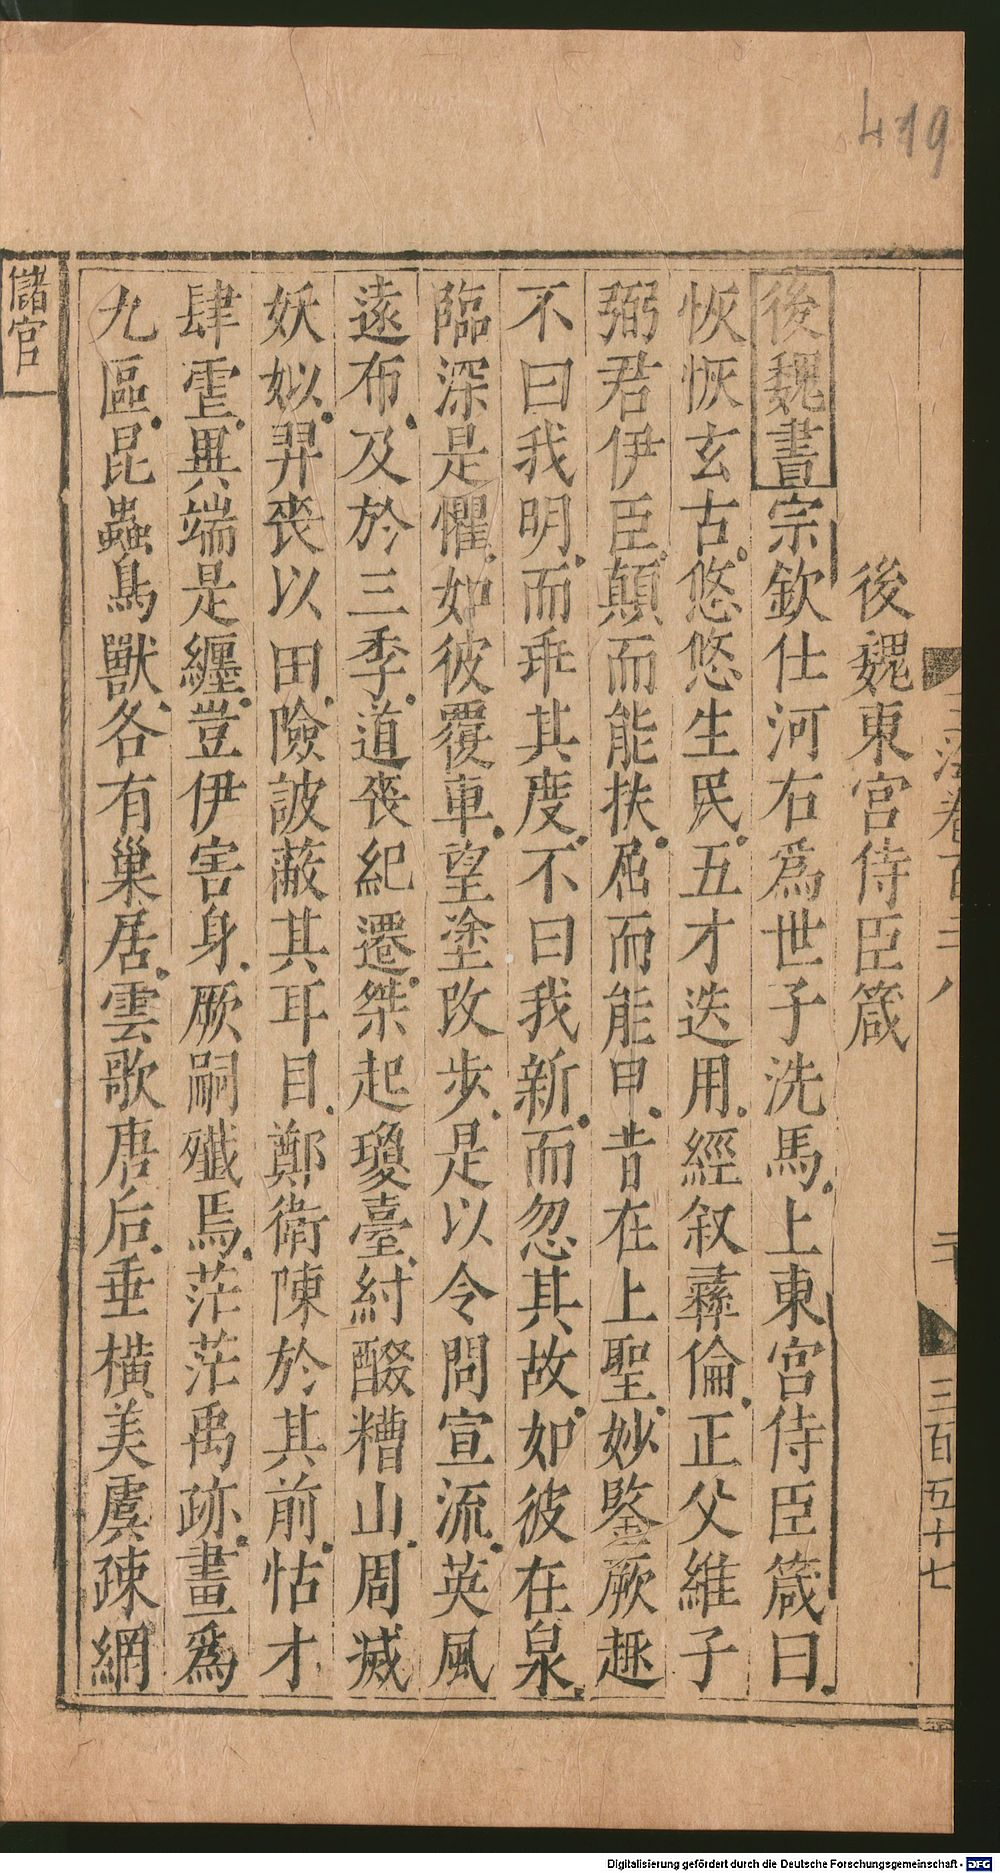 419
後魏東宮侍臣箴
後魏書宗欽仕河右爲世子洗馬上東宮侍臣箴曰
恢恢玄古悠悠生民五才迭用經叙彞倫正父維子
弼君伊臣顛而能扶屈而能申昔在上聖妙鑒厥趣
不曰我明而乖其度不曰我新而忽其故如彼在泉
臨深是懼如彼覆車望塗改步是以令問宣流英風
遠布及於三季道喪紀遷桀起瓊臺紂醊糟山周滅
妖姒羿喪以田險詖蔽其耳目鄭衛陳於其前怙才
肆虐異端是纏豈伊害身厥嗣殱焉茫茫禹跡畫爲
九區昆蟲鳥獸各有巢居雲歌唐后垂橫美虞疎網
儲宮
卷百三八
三百五十七
Digitalisierung gefördert durch die Deutsche Forschungsgemeinschaft - DFG